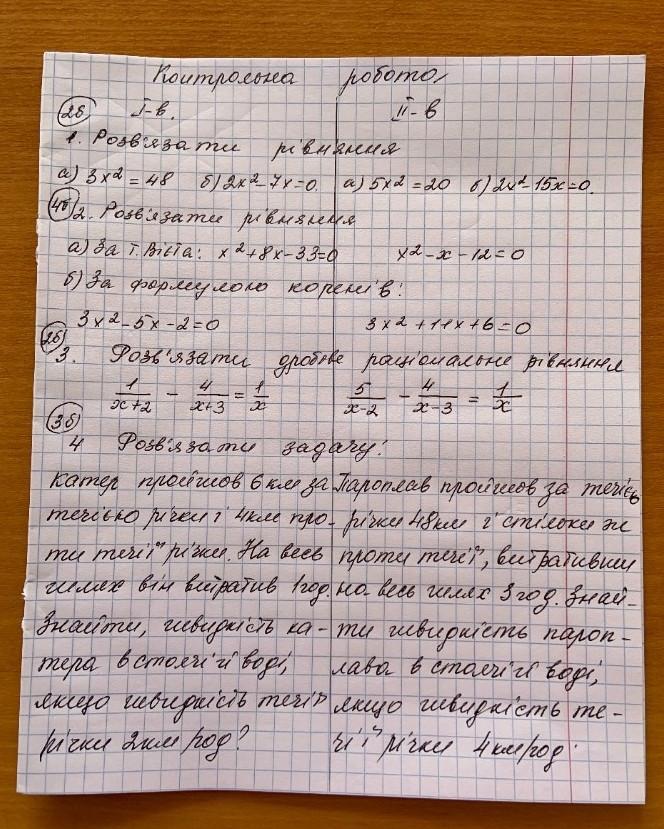 Контрольна робота
2б I-в. II-в
1. Розв'язати рівняння
а) 3x² = 48 б) 2x² - 7x = 0. а) 5x² = 20 б) 2x² - 15x = 0.
4б 2. Розв'язати рівняння
а) За т. Вієта: x² + 8x - 33 = 0 x² - x - 12 = 0
б) За формулою коренів:
3x² - 5x - 2 = 0 3x² + 11x + 6 = 0
2б
3. Розв'язати дробове раціональне рівняння
1/(x+2) - 4/(x+3) = 1/x 5/(x-2) - 4/(x-3) = 1/x
3б
4 Розв'язати задачу:
Катер пройшов 6 км за
течією річки і 4 км про-
ти течії річки. На весь
шлях він витратив 1 год.
Знайти, швидкість ка-
тера в стоячій воді,
якщо швидкість течії
річки 2 км/год?
Пароплав пройшов за течією
річки 48 км і стільки ж
проти течії, витративши
на весь шлях 3 год. Знай-
ти швидкість пароп-
лава в стоячій воді,
якщо швидкість те-
чії річки 4 км/год.